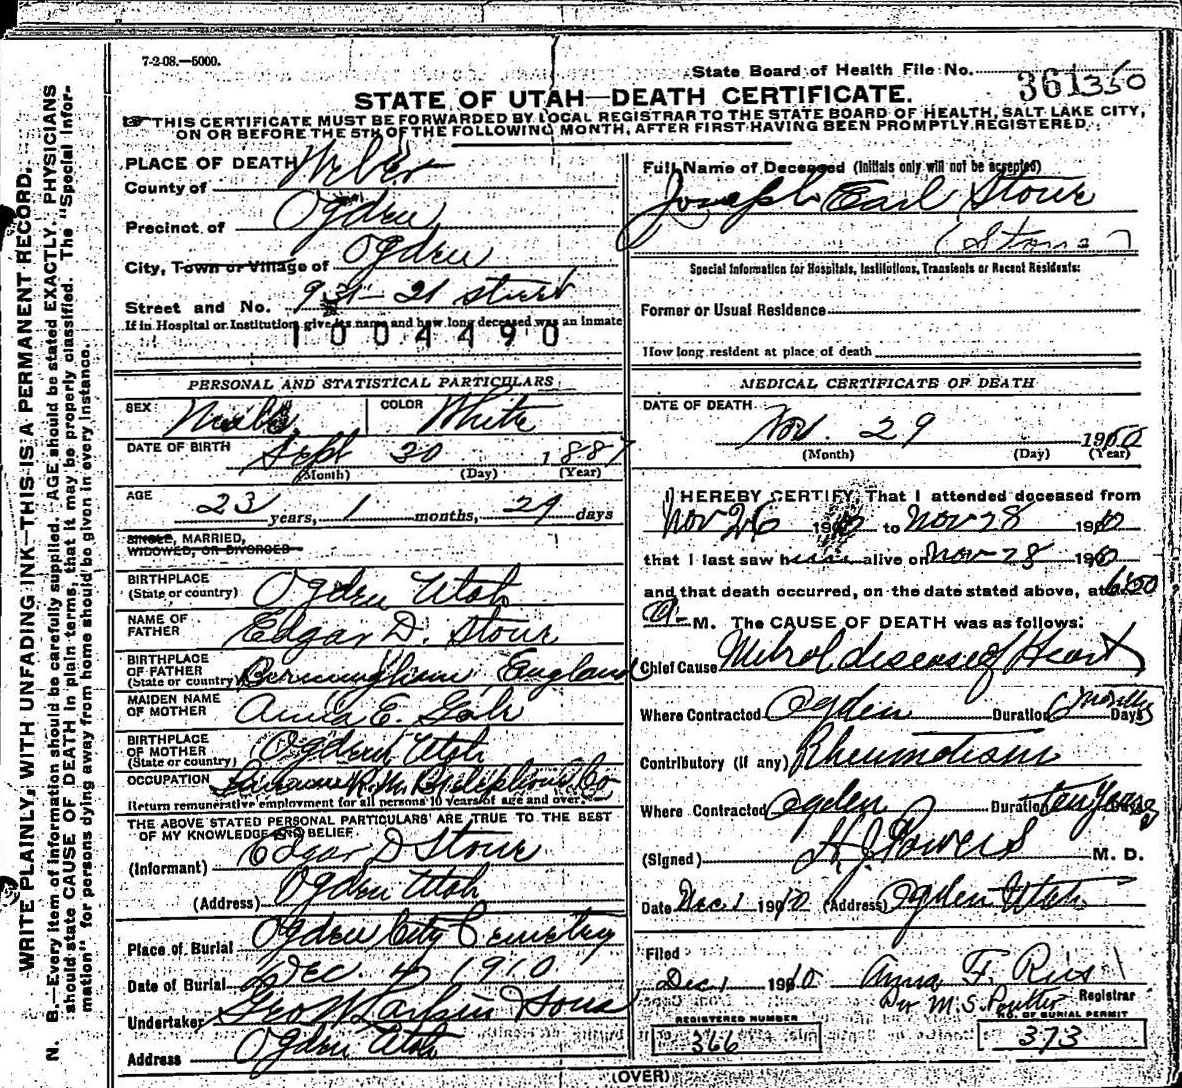 7-2-08.—5000.
State Board of Health File No. 361350
STATE OF UTAH—DEATH CERTIFICATE.
THIS CERTIFICATE MUST BE FORWARDED BY LOCAL REGISTRAR TO THE STATE BOARD OF HEALTH, SALT LAKE CITY,
ON OR BEFORE THE 5TH OF THE FOLLOWING MONTH, AFTER FIRST HAVING BEEN PROMPTLY REGISTERED.
WRITE PLAINLY, WITH UNFADING INK—THIS IS A PERMANENT RECORD.
N. B.—Every item of information should be carefully supplied. AGE should be stated EXACTLY. PHYSICIANS
should state CAUSE OF DEATH in plain terms, that it may be properly classified. The "Special Infor-
mation" for persons dying away from home should be given in every instance.
PLACE OF DEATH
County of Weber
Precinct of Ogden
City, Town or Village of Ogden
Street and No. 931–21 street
If in Hospital or Institution, give its name and how long deceased was an inmate
1004490
PERSONAL AND STATISTICAL PARTICULARS
SEX Male COLOR White
DATE OF BIRTH Sept 30 1887
(Month) (Day) (Year)
AGE
23 years, 1 months, 29 days
SINGLE, MARRIED,
WIDOWED, OR DIVORCED
BIRTHPLACE
(State or country) Ogden Utah
NAME OF
FATHER Edgar D. Stone
BIRTHPLACE
OF FATHER
(State or country) Birmingham England
MAIDEN NAME
OF MOTHER Anna E.
BIRTHPLACE
OF MOTHER
(State or country) Ogden Utah
OCCUPATION
Return remunerative employment for all persons 10 years of age and over.
THE ABOVE STATED PERSONAL PARTICULARS ARE TRUE TO THE BEST
OF MY KNOWLEDGE AND BELIEF.
(Informant) Edgar D Stone
(Address) Ogden Utah
Place of Burial Ogden City Cemetery
Date of Burial Dec. 4, 1910
Undertaker Geo W Larkin & Sons
Address Ogden Utah
Full Name of Deceased (Initials only will not be accepted)
Joseph Earl Stone
(Stone)
Special Information for Hospitals, Institutions, Transients or Recent Residents:
Former or Usual Residence
How long resident at place of death
MEDICAL CERTIFICATE OF DEATH
DATE OF DEATH
Nov. 29 1910
(Month) (Day) (Year)
I HEREBY CERTIFY, That I attended deceased from
Nov 26 1910 to Nov 28 1910
that I last saw him alive on Nov 28 1910
and that death occurred, on the date stated above, at 6:20
A. M. The CAUSE OF DEATH was as follows:
Chief Cause Mitral disease of Heart
Where Contracted Ogden Duration Months Days
Contributory (if any) Rheumatism
Where Contracted Ogden Duration ten years
(Signed) H. J. Powers M. D.
Date Dec 1 1910 (Address) Ogden Utah
Filed
Dec 1 1910 Anna F. Ries
Per M. S. Poulter Registrar
REGISTERED NUMBER
366
NO. OF BURIAL PERMIT
373
(OVER)